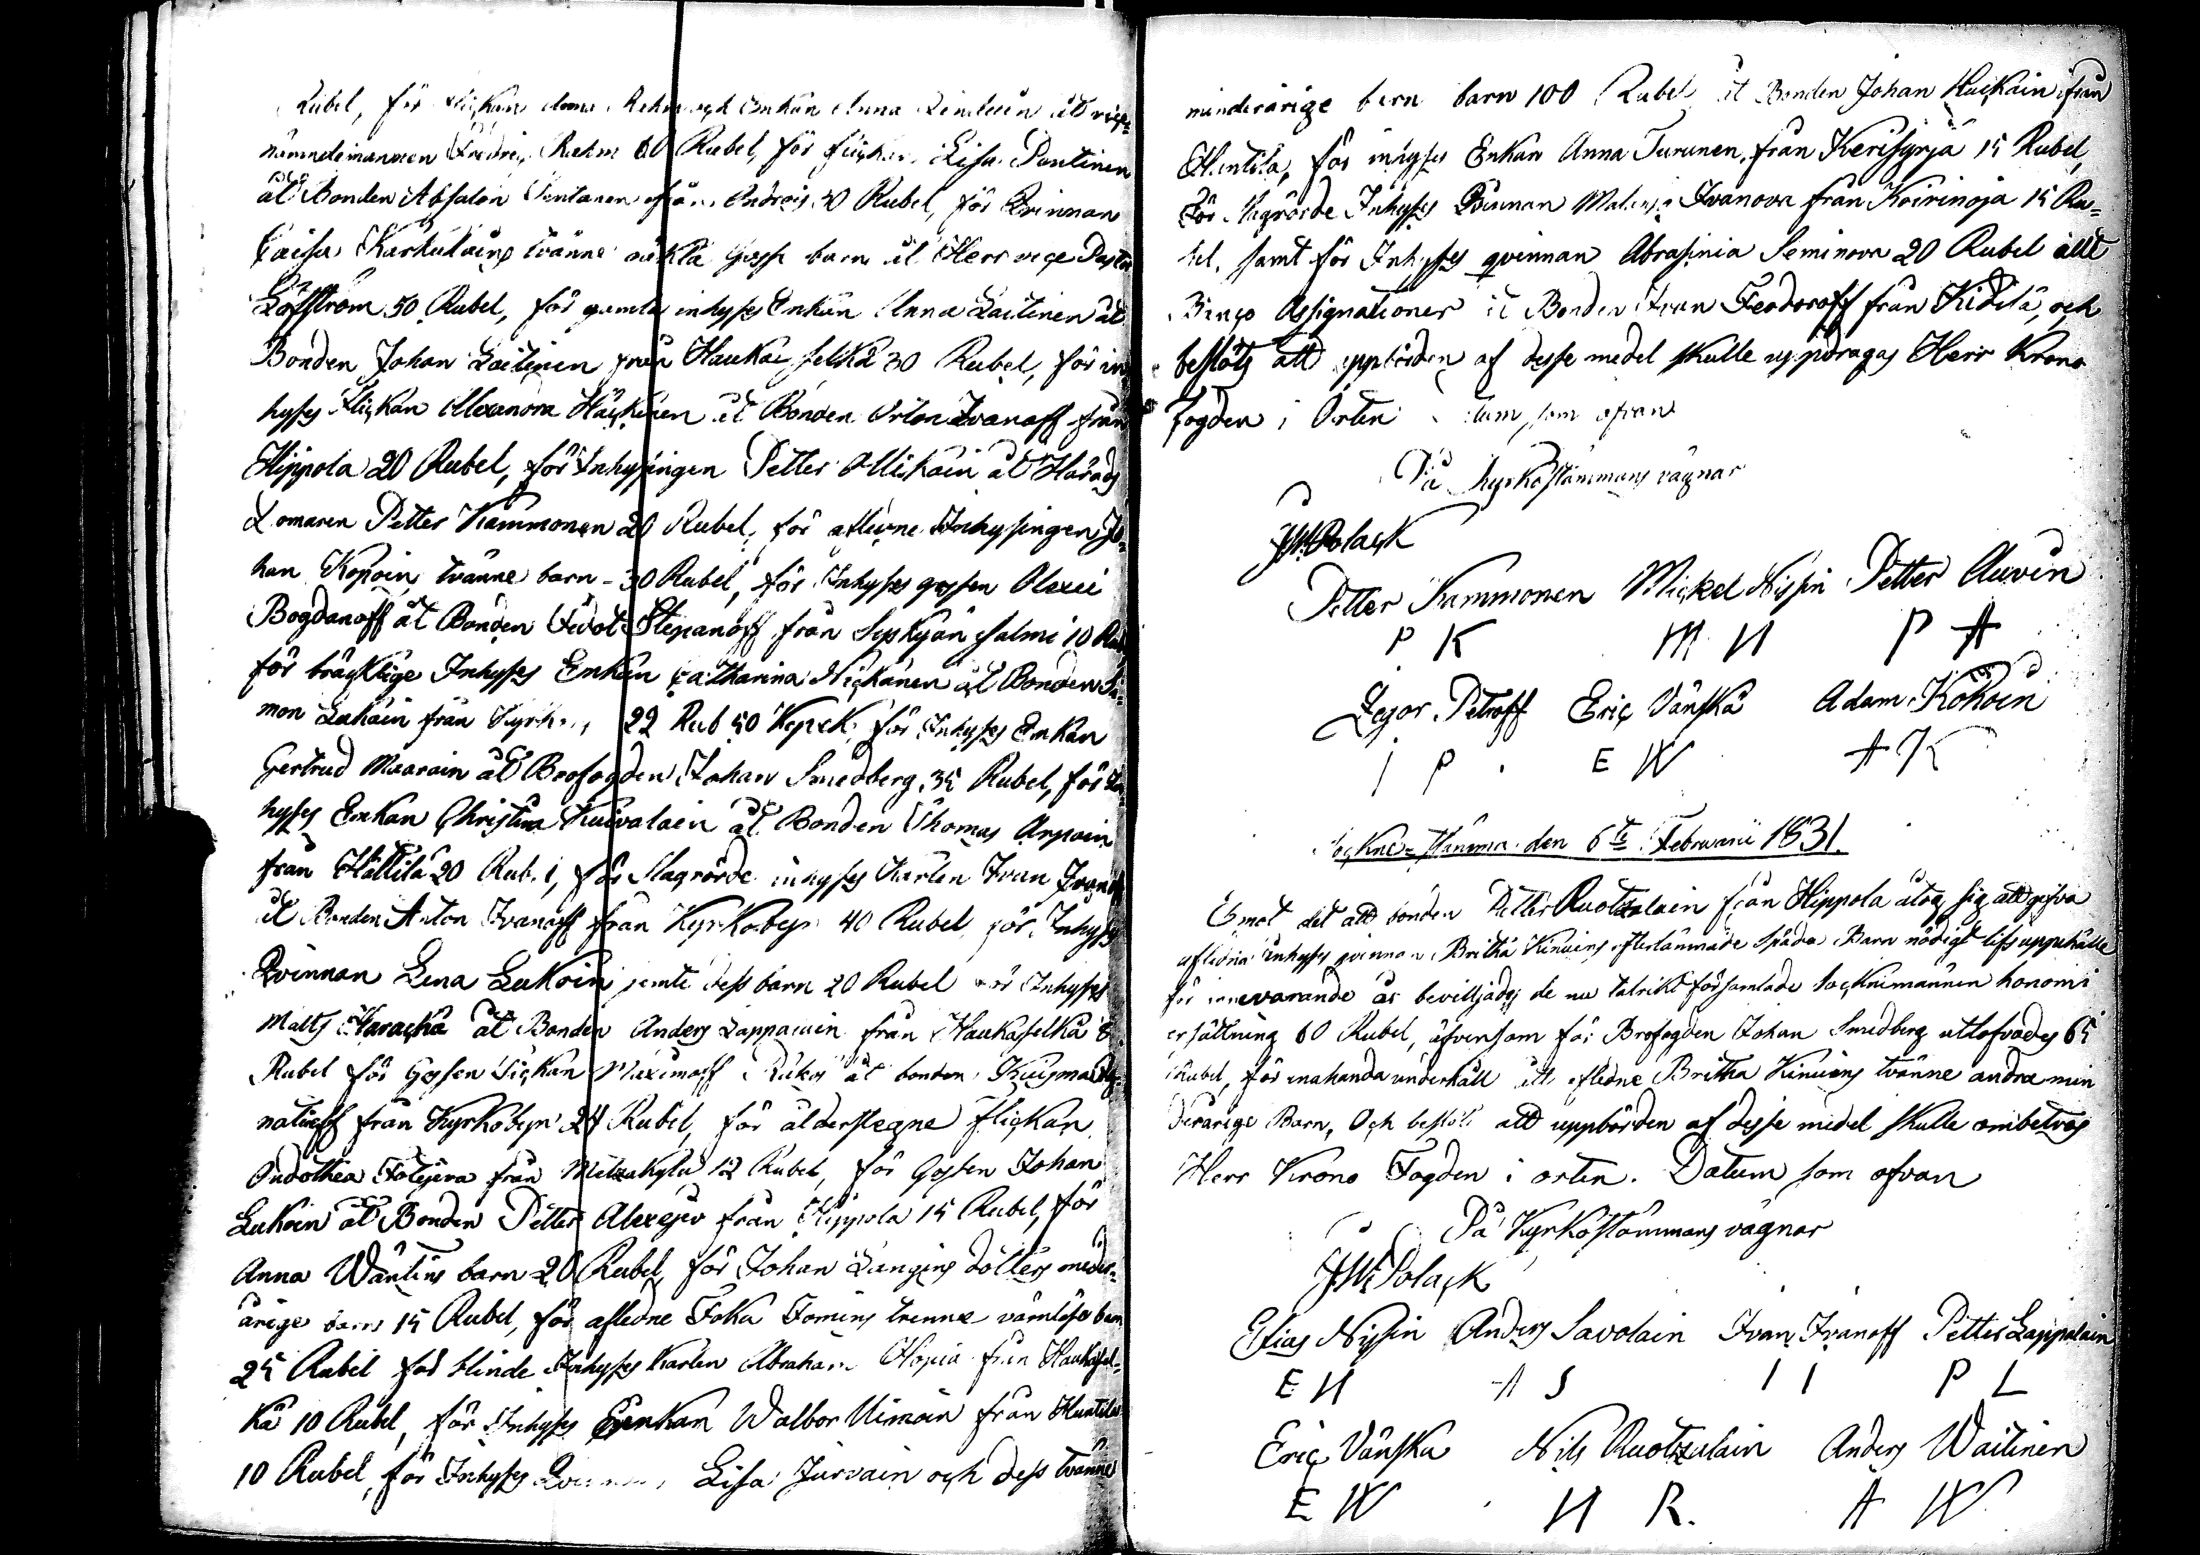 Rubel, för flickan Anna Rehn och Enkan Anna
nämndemannen Fredric Rehm 60 Rubel, för flickan Lisa Pontinen
åt Bonden Absalon från 30 Rubel, för Qvinnan
Caisa Karhulains tvänne oäkta gosse barn åt Herr vice Pastor
Löfström 50 Rubel, för gamla inhyses Enkan Anna Laitinen åt
Bonden Johan Laitinen från Haukaselkä 30 Rubel, för in-
hyses Flickan Alexanora Häckinen åt Bonden Orton Ivanoff från
Hippola 20 Rubel, för Inhysingen Petter Ollikain åt Härads
Domaren Petter Kammonen 20 Rubel, för aflidne Inhysingen Jo-
han Kopoin, tvänne barn - 30 Rubel, för Inhyses gossen Olexei
Bogdanoff åt Bonden Fedot Stepanoff från 10 Rub
för bräcklige Inhyses Enkan Catharina Nickanen åt Bonden Si-
mon Lukain från 22 Rub 50 Kopek, för Inhyses Enkan
Gertrud Maarain åt Brofogden Johan Smedberg, 35 Rubel, för In-
hyses Enkan Christina Kuivalain åt Bonden Thomas Arpoin
från Hättilä 20 Rubel, för inhyses Karlen Ivan Ivanoff
åt Bonden Anton Ivanoff från Kyrkobyn 40 Rubel, för Inhyses
Qvinnan Lena Lukoin jemte dess barn 20 Rubel för Inhyses
Matts Haracka åt Bonden Anders Lappalain från Haukaselkä 8
Rubel för Gossen Maximoff åt bonden Kusma
från Kyrkobyn 24 Rubel, för ålderstegne flickan
Oudothea från 12 Rubel, för Gossen Johan
Lukoin åt Bonden Petter Alexejev från Hippola 15 Rubel, för
Anna Wäntins barn 20 Rubel, för Johan dotters minder-
årige barn 15 Rubel, för aflidne Foka Fomins trenne värnlösa barn
25 Rubel för blinde Inhyses karlen Abraham Hopia från Haukasel-
kä 10 Rubel, för Inhyses Enkan Walbor Uimoin från Huntila
10 Rubel, för Inhyses Qvinnan Lisa Jurvain och dess tvänne
minderårige barn 100 Rubel åt Bonden Johan Häckäin från
Huntila, för inhyses Enkan Anna Turunen, från Kerisyrjä 15 Rubel,
för Inhyses Qvinnan Ivanova från Koirinoja 15 Ru-
bel, samt för Inhyses qvinnan Abrasinia Seminova 20 Rubel allt
Banco Assignationer åt Bonden Ivan Feodoroff från Kidilä, och
beslöts att uppbörden af desse medel skulle uppdragas Herr Krono
Fogden i Orten Datum som ofvan
På Kyrkostämmans vägnar
J W Polack
Petter Kammonen Mickel Nissin Petter Auvin
P K M N P A
Jegor Petroff Eric Vänskä Adam Kohoin
J P E W A K
Sockne-Stämma den 6te Februarii 1831.
Emot det att bonden Petter Ruotzalain från Hippola åtog sig att gifva
aflidna inhyses qvinnan Britha Kinuins efterlämnade späda Barn nödigt lifsuppehälle
för innevarande år bevilljades de nu talrikt församlade Socknemännen honom i
ersättning 60 Rubel, äfvensom för Brofogden Johan Smedberg utlofvades 65
Rubel, för enahanda underhåll åt aflidne Britha Kinuins tvänne andra min
derårige Barn, Och beslöts att uppbörden af desse medel skulle ombetros
Herr Krono Fogden i orten. Datum som ofvan
På Kyrkostämmans vägnar
J W Polack
Elias Nissin Anders Savolain Ivan Ivanoff Petter Lappalain
E N A S I I P L
Eric Vänskä Nils Ruotzalain Anders Waitinen
E W N R. A W